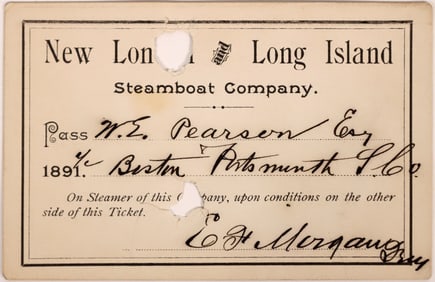 New Lon n and Long Island
Steamboat Company.
Pass W. E. Pearson Esq
1891. a/c Boston & Portsmouth S. Co.
On Steamer of this C pany, upon conditions on the other
side of this Ticket.
E F Morgan